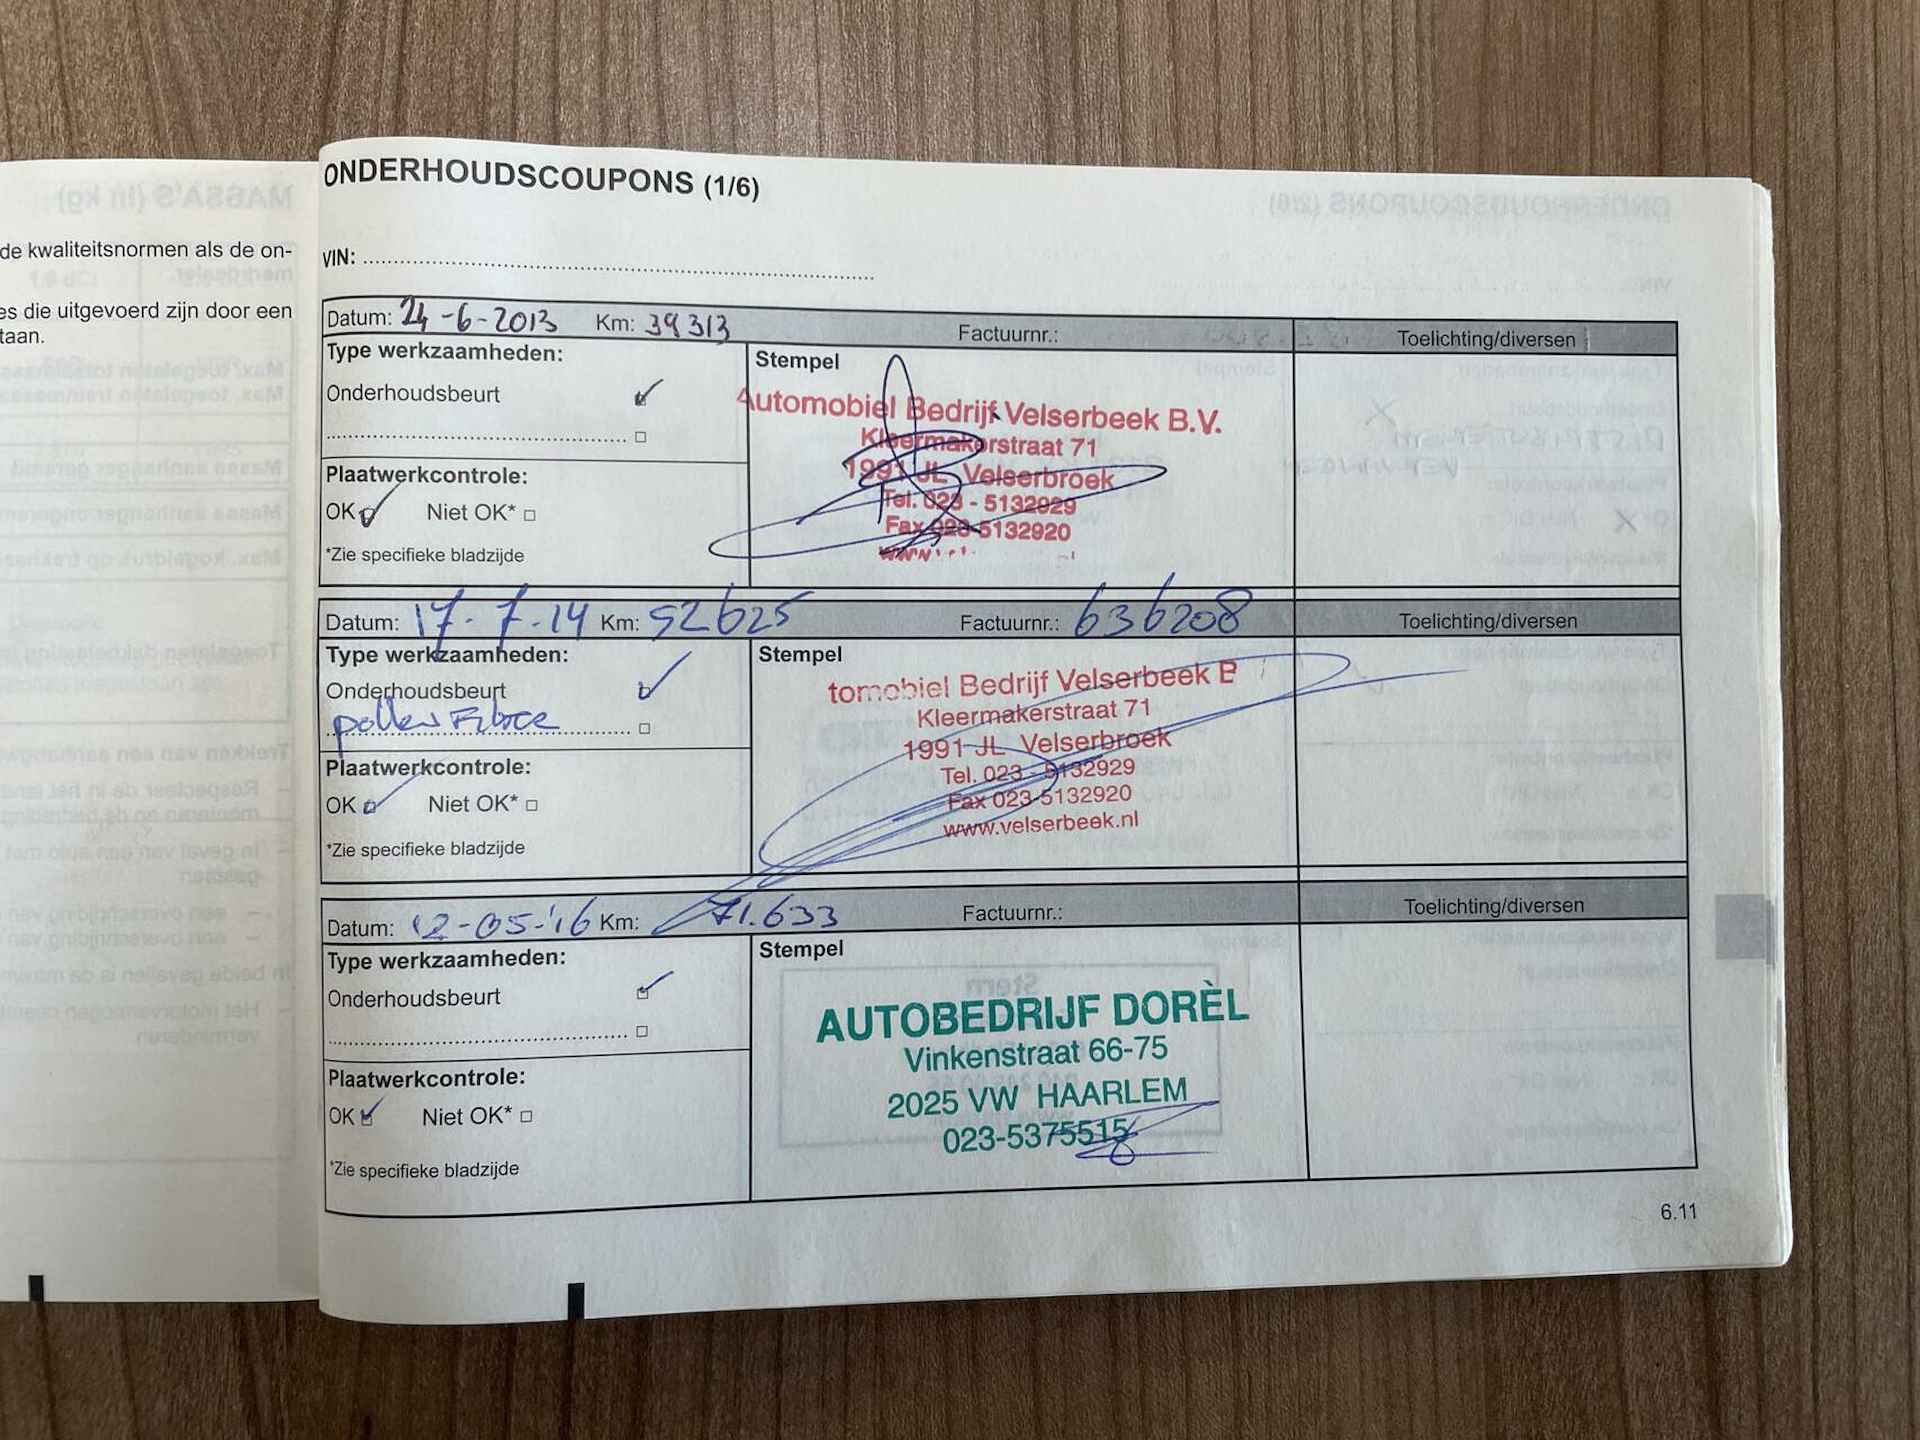 de kwaliteitsnormen als de on-
es die uitgevoerd zijn door een
taan.
ONDERHOUDSCOUPONS (1/6)
VIN: ........................................
Datum: 24-6-2013 Km: 39313 Factuurnr.: Toelichting/diversen
Type werkzaamheden:
Onderhoudsbeurt
Plaatwerkcontrole:
OK Niet OK*
*Zie specifieke bladzijde
Stempel
Automobiel Bedrijf Velserbeek B.V.
Kleermakerstraat 71
1991 JL Velserbroek
Tel. 023 - 5132929
Fax 023-5132920
Datum: 17-7-14 Km: 52625 Factuurnr.: 636208 Toelichting/diversen
Type werkzaamheden:
Onderhoudsbeurt
pollen
Plaatwerkcontrole:
OK Niet OK*
*Zie specifieke bladzijde
Stempel
tomobiel Bedrijf Velserbeek B
Kleermakerstraat 71
1991 JL Velserbroek
Tel. 023 - 5132929
Fax 023-5132920
www.velserbeek.nl
Datum: 12-05-'16 Km: 71.633 Factuurnr.: Toelichting/diversen
Type werkzaamheden:
Onderhoudsbeurt
Plaatwerkcontrole:
OK Niet OK*
*Zie specifieke bladzijde
Stempel
AUTOBEDRIJF DORÈL
Vinkenstraat 66-75
2025 VW HAARLEM
023-5375515
6.11